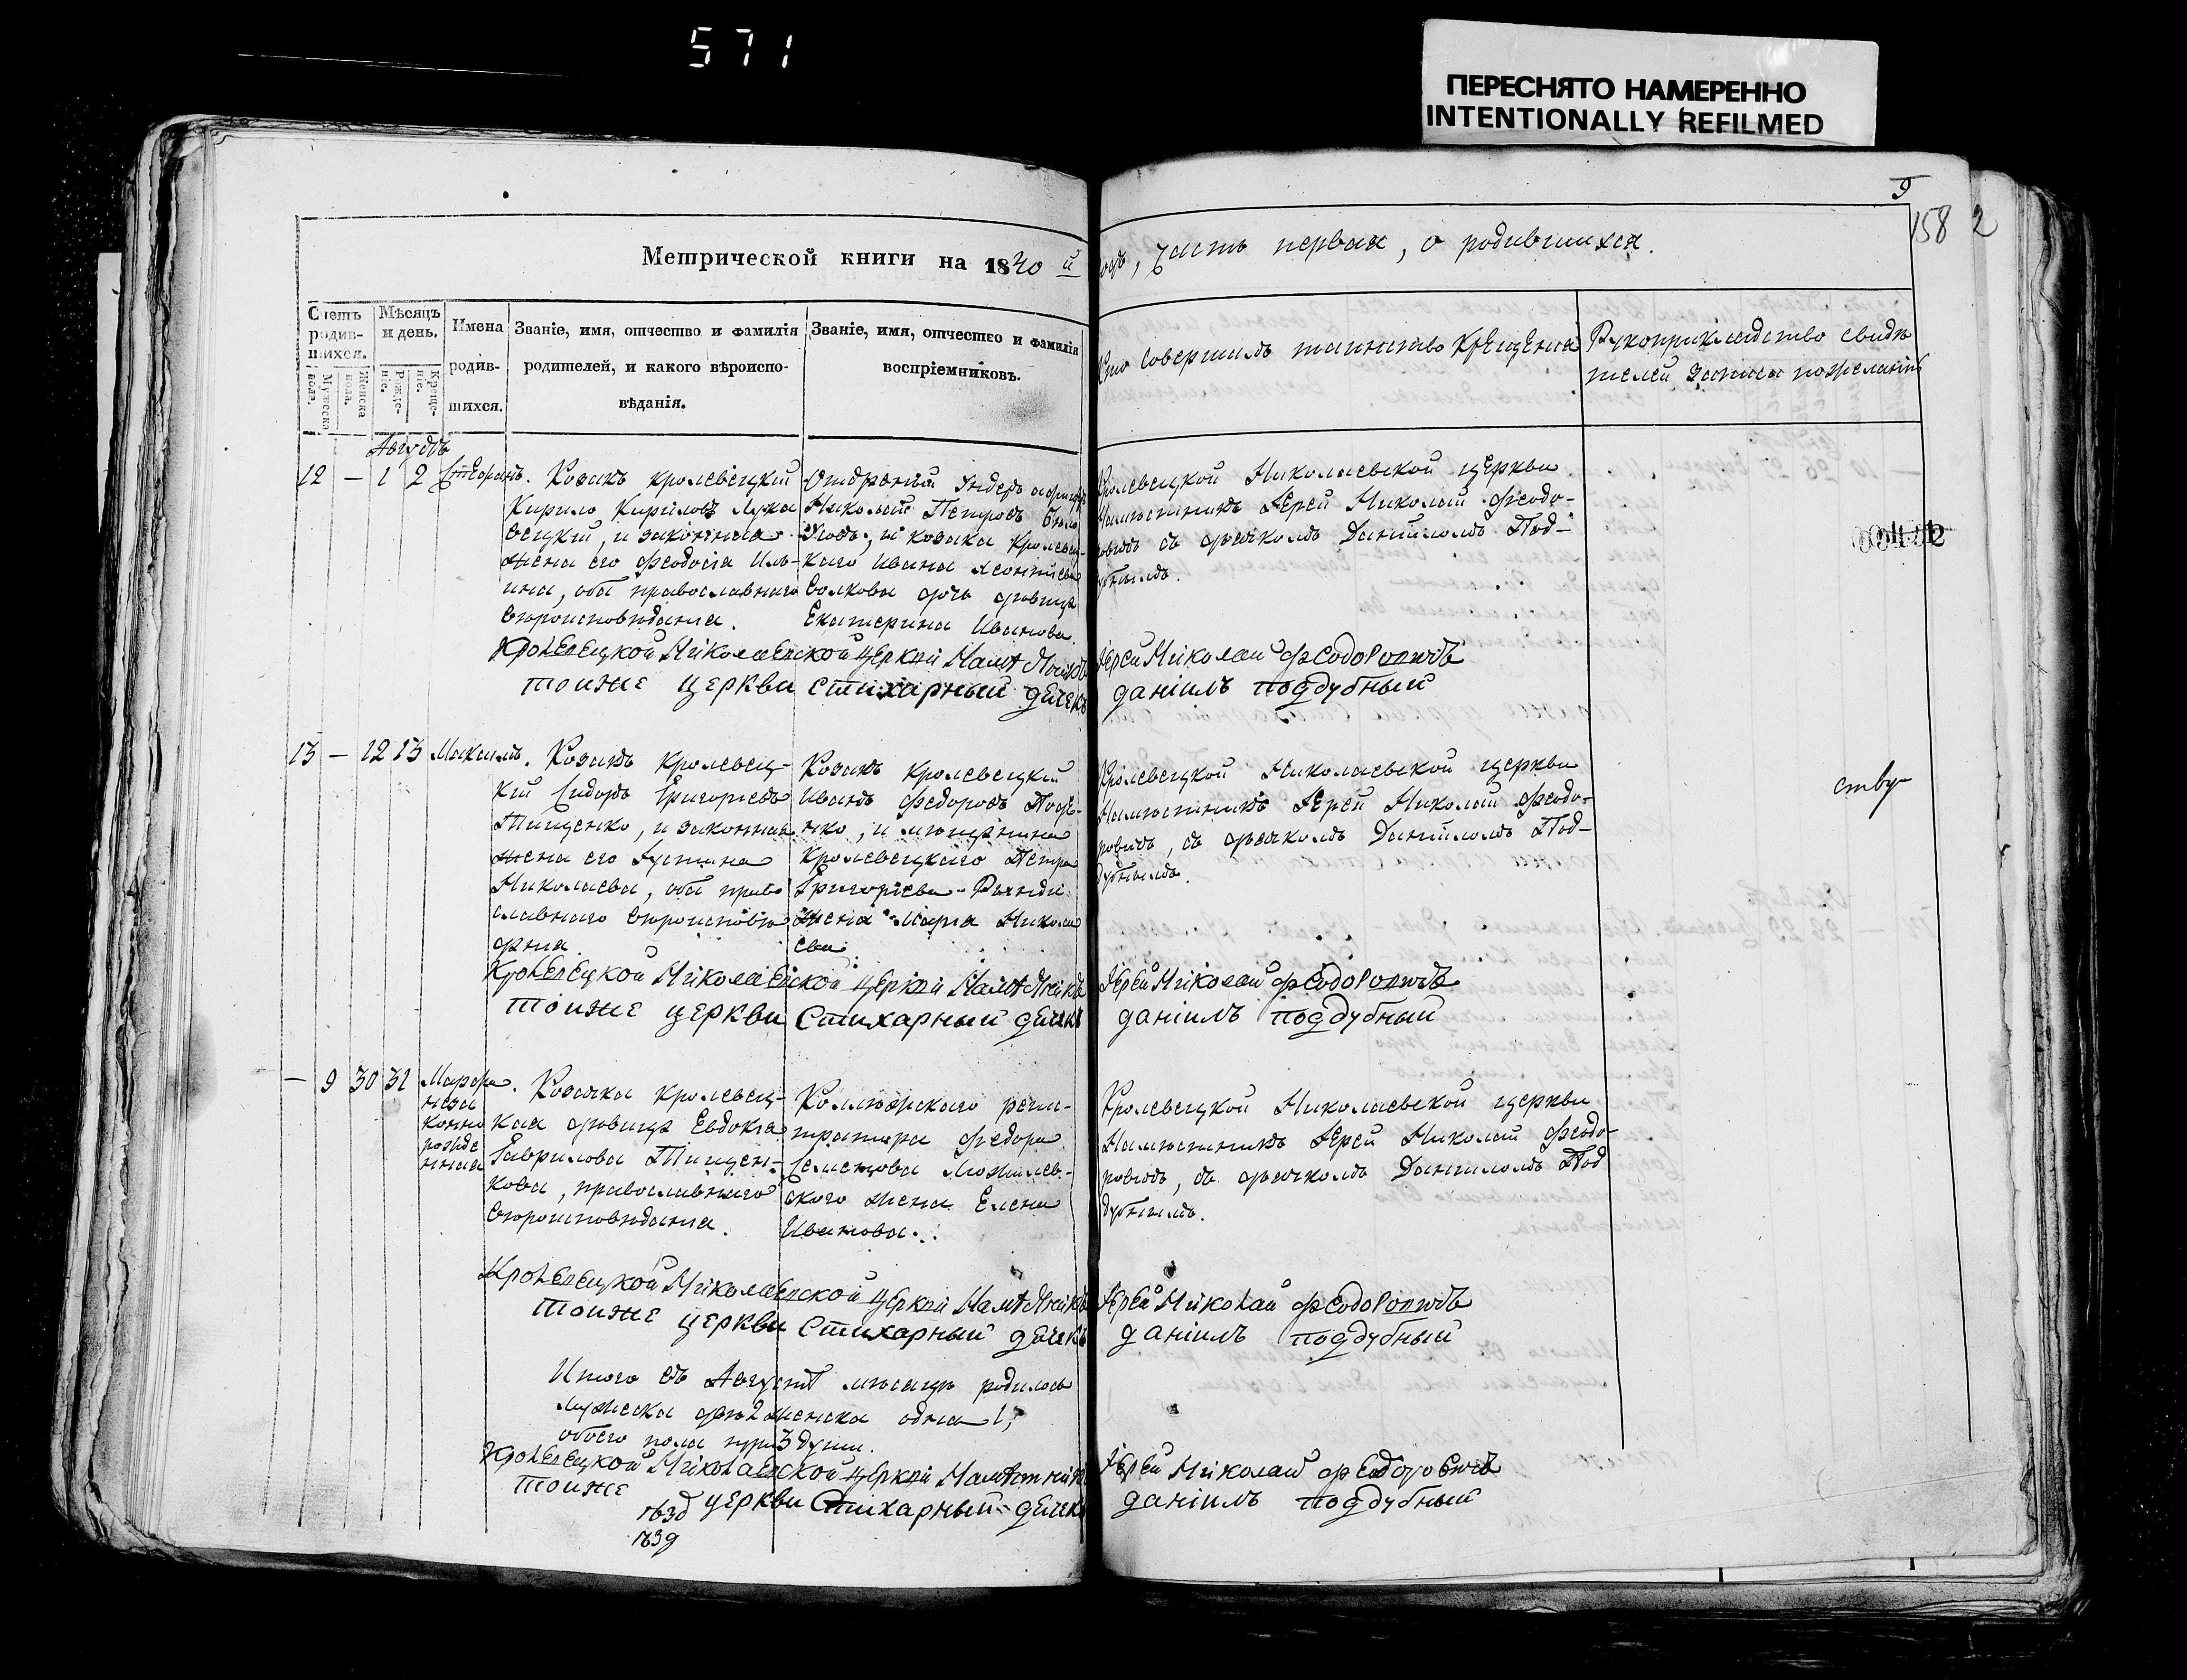 571
ПЕРЕСНЯТО НАМЕРЕННО
INTENTIONALLY REFILMED
9
158 2
Метрической книги на 1840 й
годъ, Часть первая, о родившихся.
Счетъ родив-шихся.
Мужеска пола.
Женска пола.
Мѣсяцъ и день.
Рожде-ніе.
Креще-ніе.
Имена родив-шихся.
Званіе, имя, отчество и фамилія
родителей, и какого вѣроиспо-
вѣданія.
Званіе, имя, отчество и фамилія
воспріемниковъ.
Кто совершалъ таинство крещенія
Рукоприкладство свидѣ
телей записи по желанію
Августъ
12 — 1 2 Стефанъ.
Козакъ кролевецкій
Кирило Кириловъ
вецкій, и законная
жена его Феодосія Иль-
ина, оба православнаго
вѣроисповѣданія.
Николай Петровъ
и козака Кролевец-
каго Ивана Леонтіева
Волкова дочь дѣвица
Екатерина Иванова.
Кролевецкой Николаевской церкви
Намѣстникъ Іерей Николай Феодо-
ровичъ съ дьячкомъ Даніиломъ Под-
дубнымъ.
Кролевецкой Николаевской церкви Намѣстникъ Іерей Николай Феодоровичъ
тоиже церкви стихарный дячекъ даніилъ поддубный
004182
13 — 12 13 Максимъ.
Козакъ кролевец-
кій Сидоръ Григорьевъ
Тищенко, и законная
жена его Іустина
Николаева, оба право
славнаго вѣроисповѣ
данія
Козакъ кролевецкій
Иванъ Федоровъ
нко, и мѣщанина
Кролевецкаго Петра
Григоріева
жена Марія Никола
ева.
Кролевецкой Николаевской церкви
Намѣстникъ Іерей Николай Феодо-
ровичъ, съ дьячкомъ Даніиломъ Под-
дубнымъ.
Кролевецкой Николаевской церкви Намѣстникъ Іерей Николай Феодоровичъ
тоиже церкви Стихарный дячекъ даніилъ поддубный
ству
— 9 30 31 Марфа
неза
конно
рожде
нная
Козачка кролевец-
кая дѣвица Евдокія
Гаврилова Тищен-
кова, православнаго
вѣроисповѣданія.
Коллежскаго реги-
стратора Федора
Семенова
ского жена Елена
Иванова.
Кролевецкой Николаевской церкви
Намѣстникъ Іерей Николай Феодо-
ровичъ, съ дьячкомъ Даніиломъ Под
дубнымъ.
Кролевецкой Николаевской церкви Намѣстникъ Іерей Николай Феодоровичъ
тоиже церкви Стихарный дячекъ даніилъ поддубный
Итого въ Августѣ мѣсяцѣ родилось
мужеска два 2 женска одна 1,
обоего пола три 3 души.
Кролевецкой Николаевской церкви Намѣстникъ Іерей Николай Феодоровичъ
тоиже церкви Стихарный дячекъ даніилъ поддубный